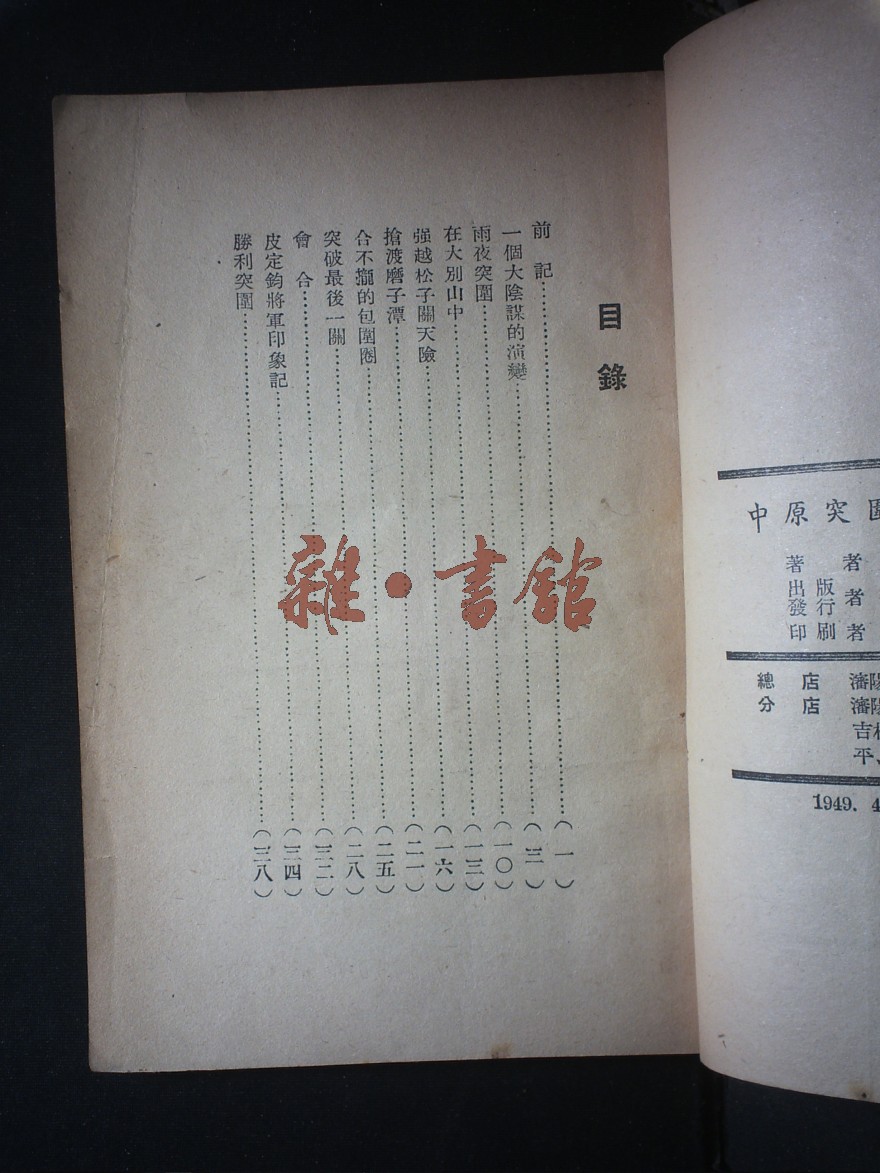 目錄
前記……(一)
一個大陰謀的演變……(三)
雨夜突圍……(一〇)
在大別山中……(一三)
强越松子關天險……(一六)
搶渡磨子潭……(二一)
合不攏的包圍圈……(二五)
突破最後一關……(二八)
會合……(三二)
皮定鈞將軍印象記……(三四)
勝利突圍……(三八)
雜·書館
中原突圍
著者
出版
發行者
印刷者
總店 瀋陽
分店 瀋陽
吉
平
1949. 4